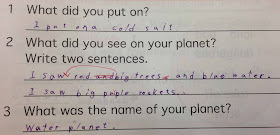 1 What did you put on?
I put on a gold suit.
2 What did you see on your planet?
Write two sentences.
I saw red and big trees and blue water.
I saw big pink rockets.
3 What was the name of your planet?
Water planet.